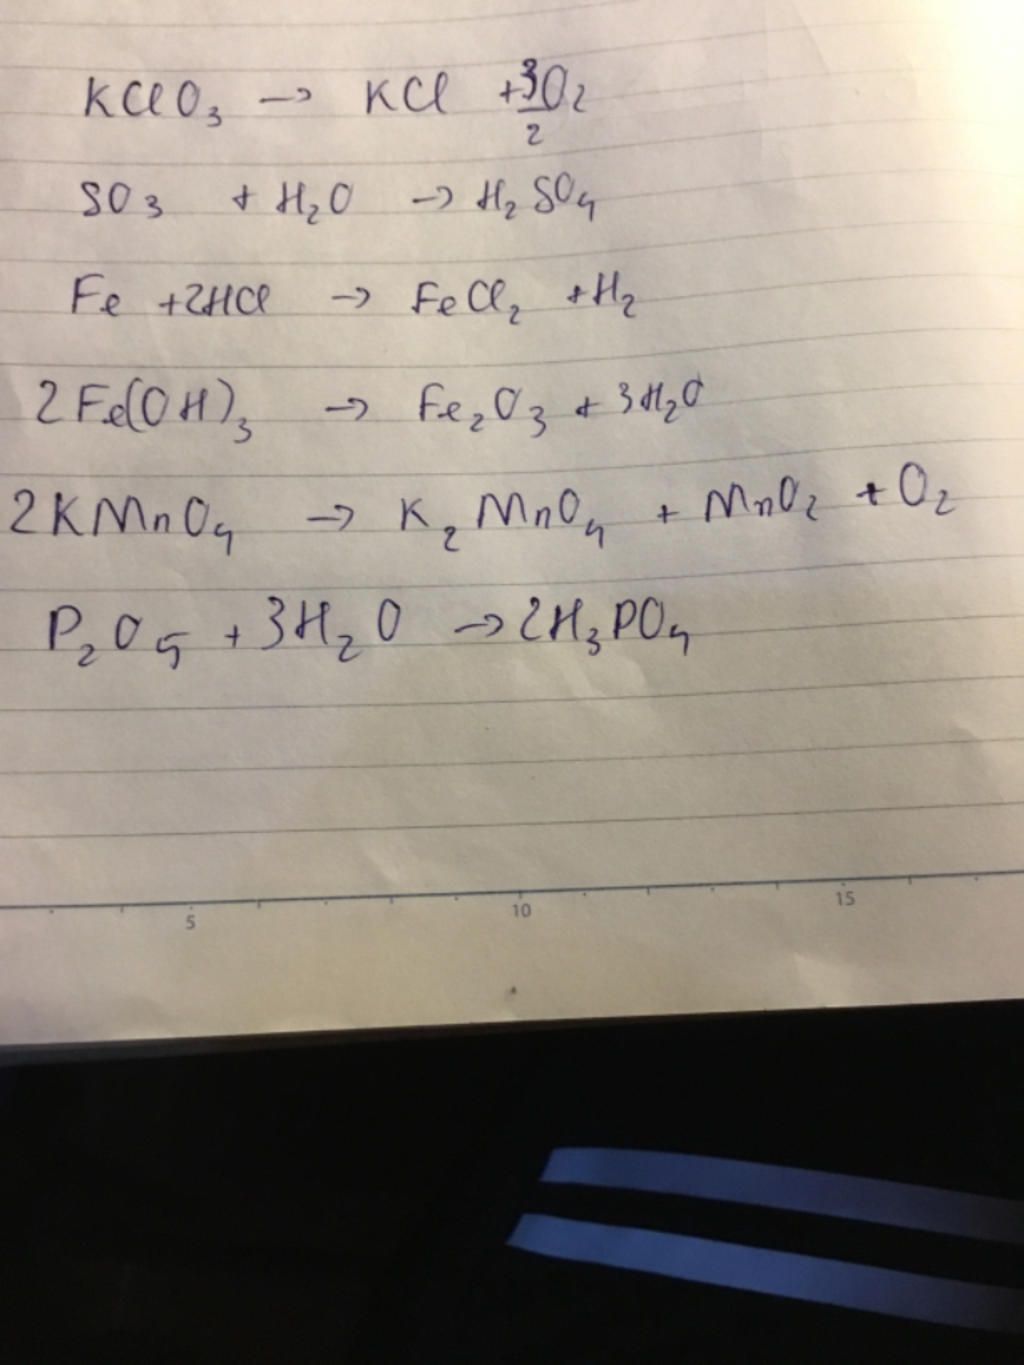 KClO₃ → KCl + 3/2 O₂
SO₃ + H₂O → H₂SO₄
Fe + 2HCl → FeCl₂ + H₂
2Fe(OH)₃ → Fe₂O₃ + 3H₂O
2KMnO₄ → K₂MnO₄ + MnO₂ + O₂
P₂O₅ + 3H₂O → 2H₃PO₄
5 10 15